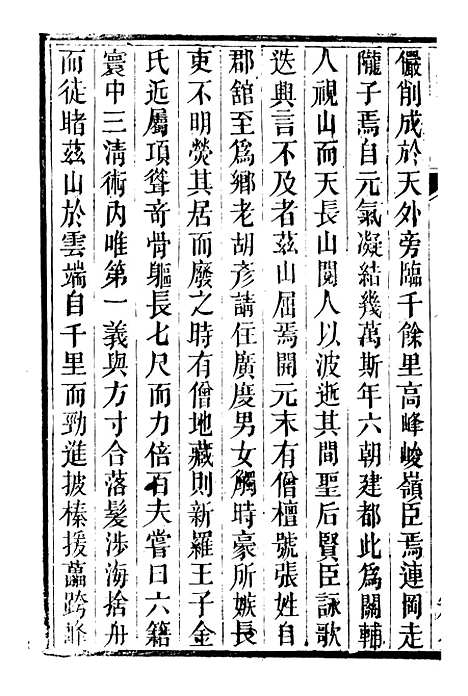 儼削成於天外旁臨千餘里高峰峻嶺臣焉連岡走
隴子焉自元氣凝結幾萬斯年六朝建都此爲關輔
人視山而天長山閱人以波逝其間聖后賢臣詠歌
迭興言不及者茲山屈焉開元末有僧檀號張姓自
郡舘至爲鄉老胡彥請住廣度男女觸時豪所嫉長
吏不明熒其居而廢之時有僧地藏則新羅王子金
氏近屬項聳奇骨軀長七尺而力倍百夫嘗曰六籍
寰中三清術內唯第一義與方寸合落髮涉海捨舟
而徒睹茲山於雲端自千里而勁進披榛援藟跨峰